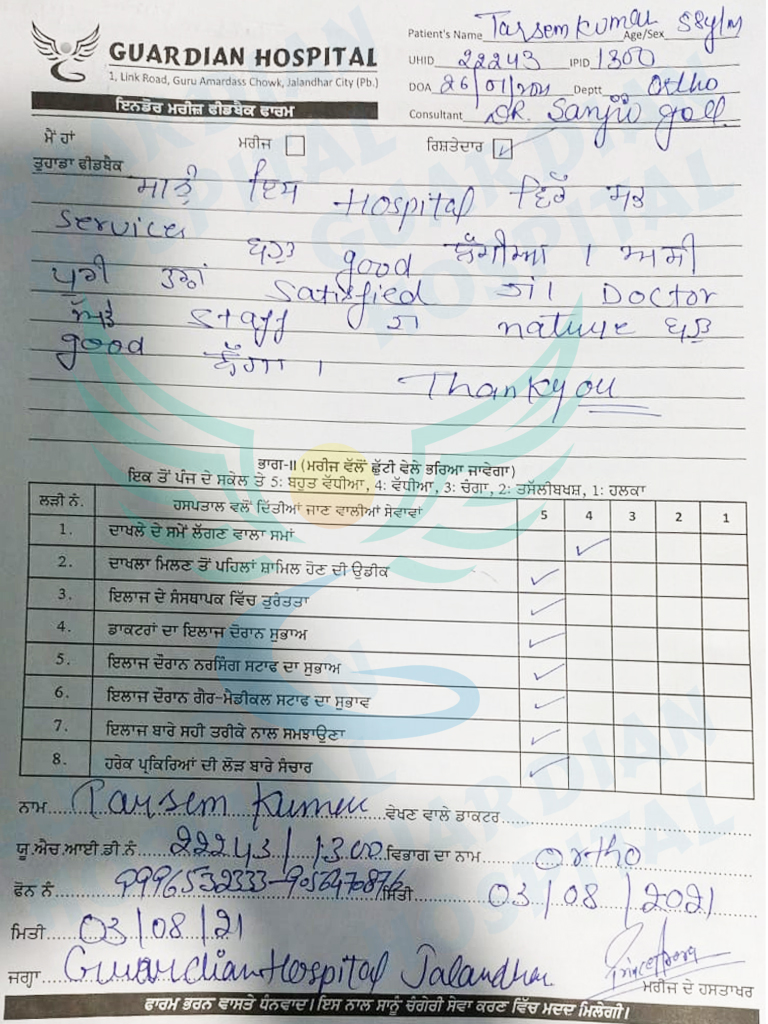 GUARDIAN HOSPITAL
1, Link Road, Guru Amardass Chowk, Jalandhar City (Pb.)
ਇਨਡੋਰ ਮਰੀਜ਼ ਫੀਡਬੈਕ ਫਾਰਮ
Patient's Name Tarsem Kumar Age/Sex 58y/m
UHID 22243 IPID 1300
DOA 26/01/2021 Deptt Ortho
Consultant DR. Sanjiv Goel
ਮੈਂ ਹਾਂ ਮਰੀਜ ਰਿਸ਼ਤੇਦਾਰ ✓
ਤੁਹਾਡਾ ਫੀਡਬੈਕ
ਸਾਨੂੰ ਇਸ Hospital ਵਿੱਚ ਸਭ
services ਬਹੁਤ good ਲੱਗੀਆ । ਅਸੀ
ਪੂਰੀ ਤਰਾਂ satisfied ਹਾਂ। Doctor
ਅਤੇ staff ਦਾ nature ਬਹੁਤ
good ਲੱਗਾ ।
Thankyou
ਭਾਗ-II (ਮਰੀਜ ਵੱਲੋਂ ਛੁੱਟੀ ਵੇਲੇ ਭਰਿਆ ਜਾਵੇਗਾ)
ਇਕ ਤੋਂ ਪੰਜ ਦੇ ਸਕੇਲ ਤੇ 5: ਬਹੁਤ ਵੱਧੀਆ, 4: ਵੱਧੀਆ, 3: ਚੰਗਾ, 2: ਤਸੱਲੀਬਖਸ਼, 1: ਹਲਕਾ
ਲੜੀ ਨੰ. ਹਸਪਤਾਲ ਵਲੋਂ ਦਿੱਤੀਆਂ ਜਾਣ ਵਾਲੀਆਂ ਸੇਵਾਵਾਂ 5 4 3 2 1
1. ਦਾਖਲੇ ਦੇ ਸਮੇਂ ਲੱਗਣ ਵਾਲਾ ਸਮਾਂ ✓
2. ਦਾਖਲਾ ਮਿਲਣ ਤੋਂ ਪਹਿਲਾਂ ਸ਼ਾਮਿਲ ਹੋਣ ਦੀ ਉਡੀਕ ✓
3. ਇਲਾਜ ਦੇ ਸੰਸਥਾਪਕ ਵਿੱਚ ਤੁਰੰਤਤਾ ✓
4. ਡਾਕਟਰਾਂ ਦਾ ਇਲਾਜ ਦੌਰਾਨ ਸੁਭਾਅ ✓
5. ਇਲਾਜ ਦੌਰਾਨ ਨਰਸਿੰਗ ਸਟਾਫ ਦਾ ਸੁਭਾਅ ✓
6. ਇਲਾਜ ਦੌਰਾਨ ਗੈਰ-ਮੈਡੀਕਲ ਸਟਾਫ ਦਾ ਸੁਭਾਵ ✓
7. ਇਲਾਜ ਬਾਰੇ ਸਹੀ ਤਰੀਕੇ ਨਾਲ ਸਮਝਾਉਣਾ ✓
8. ਹਰੇਕ ਪ੍ਰਕਿਰਿਆਂ ਦੀ ਲੋੜ ਬਾਰੇ ਸੰਚਾਰ ✓
ਨਾਮ Tarsem Kumar ਵੇਖਣ ਵਾਲੇ ਡਾਕਟਰ
ਯੂ.ਐਚ.ਆਈ.ਡੀ.ਨੰ. 22243/1300 ਵਿਭਾਗ ਦਾ ਨਾਮ Ortho
ਫੋਨ ਨੰ. ਮਿਤੀ 03/08/2021
ਮਿਤੀ 03/08/21
ਜਗ੍ਹਾ Guardian Hospital Jalandhar
ਮਰੀਜ ਦੇ ਹਸਤਾਖਰ
ਫਾਰਮ ਭਰਨ ਵਾਸਤੇ ਧੰਨਵਾਦ। ਇਸ ਨਾਲ ਸਾਨੂੰ ਚੰਗੇਰੀ ਸੇਵਾ ਕਰਣ ਵਿੱਚ ਮਦਦ ਮਿਲੇਗੀ।